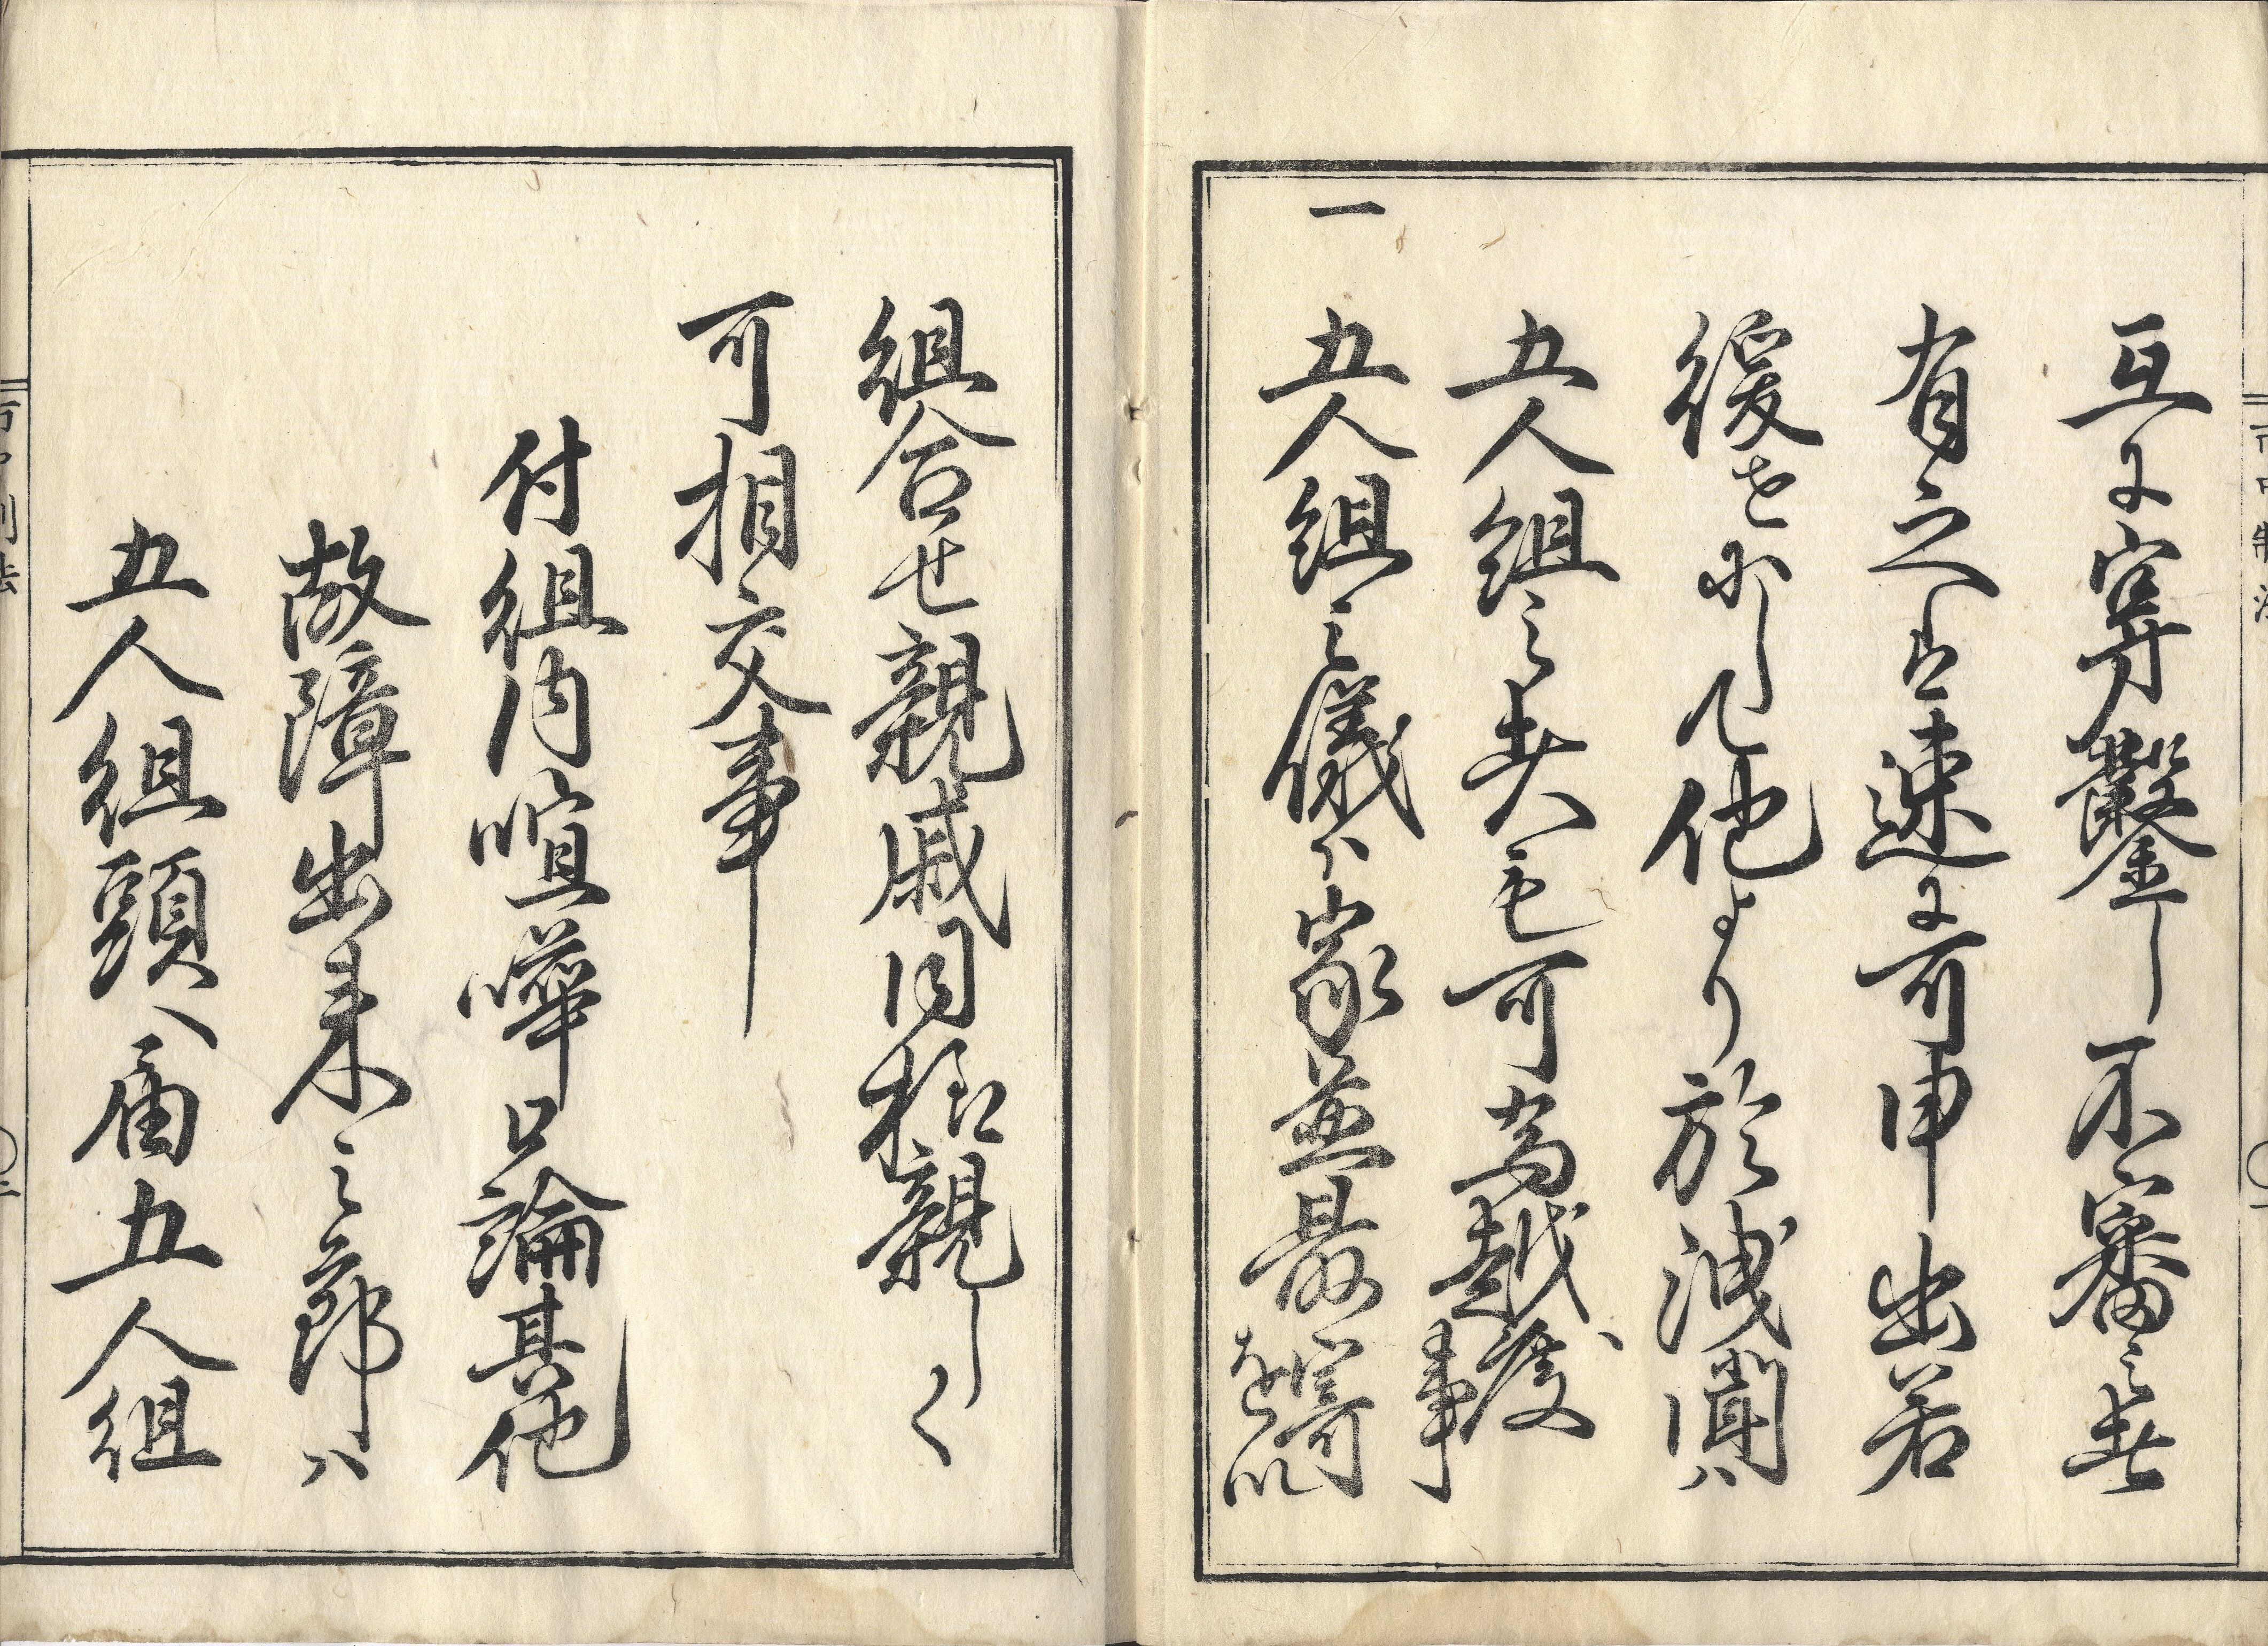 互に穿鑿し不審之者
有之は速に可申出若
緩せにいたし他より於洩聞ハ
五人組之者共も可為越度事
一 五人組之儀ハ家並最寄を以
組合せ親戚同様親しく
可相交事
付組内喧嘩口論其他
故障出来之節ハ
五人組頭ハ勿論五人組
市中制法